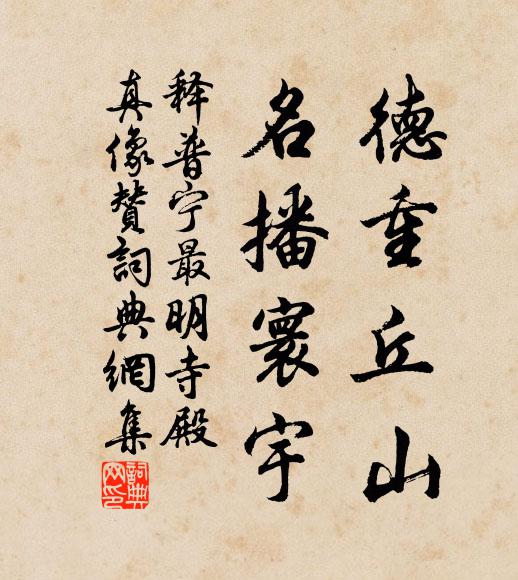 德重丘山
名播寰宇
释普宁最明寺殿
真像赞词典網集
詞典网印